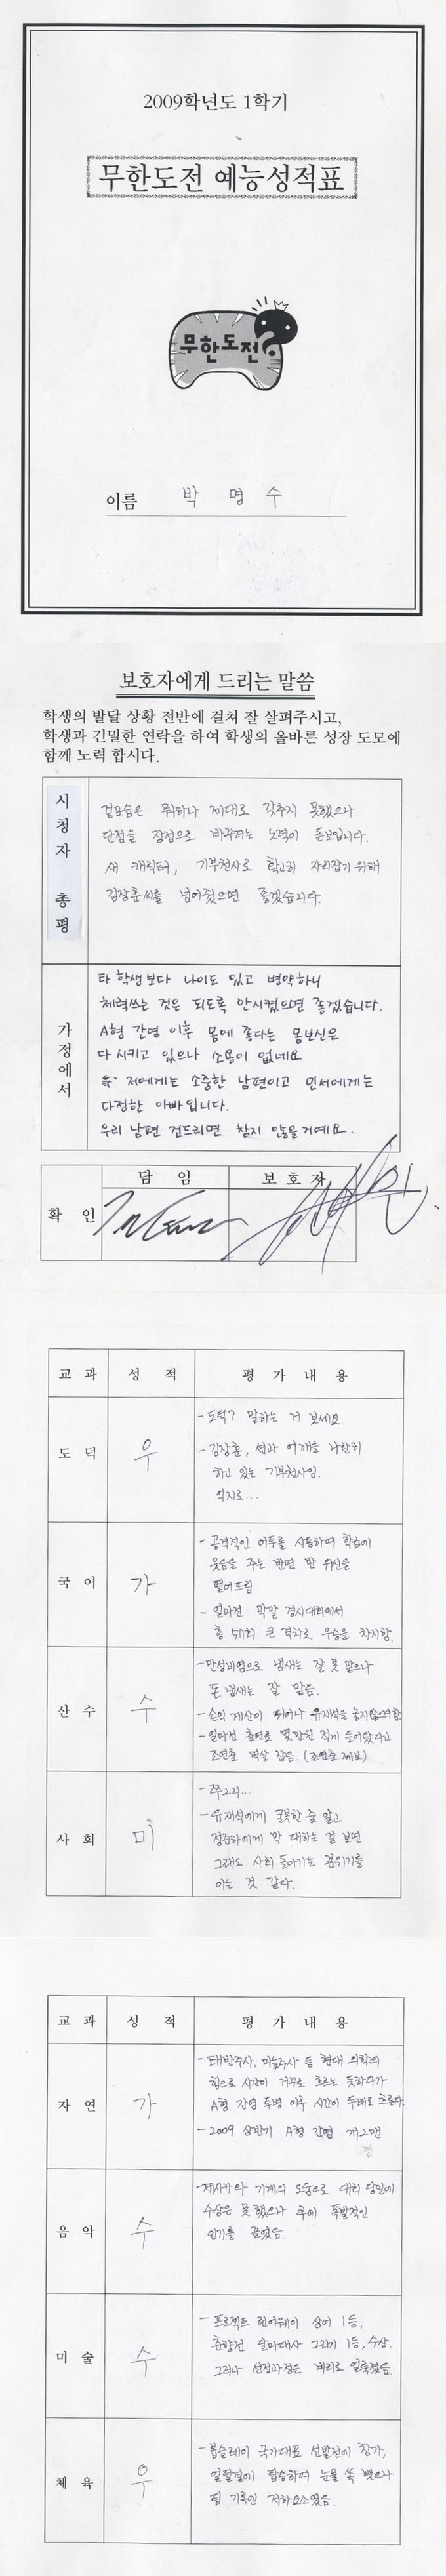 2009학년도 1학기
무한도전 예능성적표
무한도전
이름 박 명 수
보호자에게 드리는 말씀
학생의 발달 상황 전반에 걸쳐 잘 살펴주시고,
학생과 긴밀한 연락을 하여 학생의 올바른 성장 도모에
함께 노력 합시다.
시청자 총평
겉모습은 뭐하나 제대로 갖추지 못했으나
단점을 장점으로 바꾸려는 노력이 돋보입니다.
새 캐릭터, 기부천사로 확실히 자리잡기 위해
김장훈씨를 넘어줬으면 좋겠습니다.
가정에서
타 학생보다 나이도 있고 병약하니
체력쓰는 것은 되도록 안시켰으면 좋겠습니다.
A형 간염 이후 몸에 좋다는 몸보신은
다 시키고 있으나 소용이 없네요
저에게는 소중한 남편이고 민서에게는
다정한 아빠입니다.
우리 남편 건드리면 참지 않을거예요.
확 인 담 임 보 호 자
교 과 성 적 평 가 내 용
도 덕 우
- 도덕? 말하는 거 보세요.
- 김장훈, 션과 어깨를 나란히
하고 있는 기부천사임.
억지로...
국 어 가
- 공격적인 어투를 사용하여 학습에
웃음을 주는 반면 반 위신을
떨어뜨림
- 얼마전 막말 경시대회에서
총 57회 큰 격차로 우승을 차지함.
산 수 수
- 만성비염으로 냄새는 잘 못 맡으나
돈 냄새는 잘 맡음.
- 손익 계산이 뛰어나 유재석을 놓지않으려함
- 얼마전 출연료 몇만원 적게 들어왔다고
조연출 멱살 잡음. (조연출 제보)
사 회 미
- 쭈그리...
- 유재석에게 굴복할 줄 알고
정준하에게 막 대하는 걸 보면
그래도 사회 돌아가는 분위기를
아는 것 같다.
교 과 성 적 평 가 내 용
자 연 가
- 태반주사, 마늘주사 등 현대 의학의
힘으로 시간이 거꾸로 흐르는 듯하다가
A형 간염 투병 이후 시간이 두배로 흐른다.
- 2009 상반기 A형 간염
음 악 수
- 제시카와 기계의 도움으로 대회 당일에
수상은 못 했으나 후에 폭발적인
인기를 끌었음.
미 술 수
- 프로젝트 런어웨이 상어 1등,
춘향전 달마대사 그리기 1등, 수상.
그러나 선정과정은 비리로 얼룩졌음.
체 육 우
- 봅슬레이 국가대표 선발전에 참가,
얼떨결에 탑승하여 눈물 쏙 뺐으나
팀 기록엔 저하요소였음.